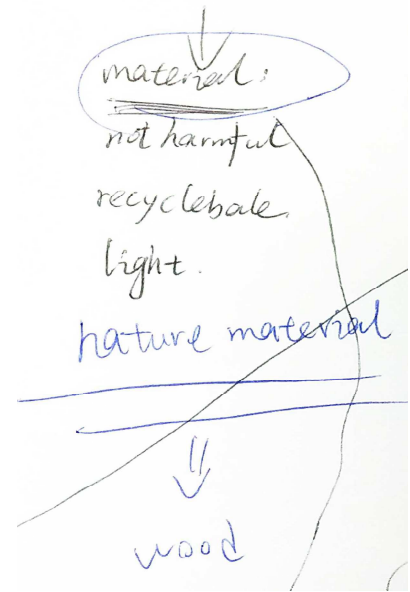 material:
not harmful
recyclebale.
light.
nature material
wood